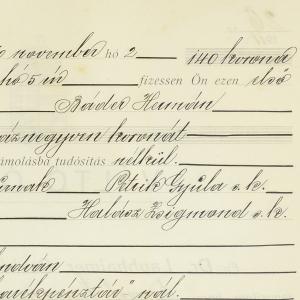 november hó 2 140 korona
hó 5 én fizessen Ön ezen első
Bader Hermán
száznegyven koronát
számolásba tudósítás nélkül.
Petrik Gyula s. k.
Halász Zsigmond s. k.
takarékpénztár" nál.